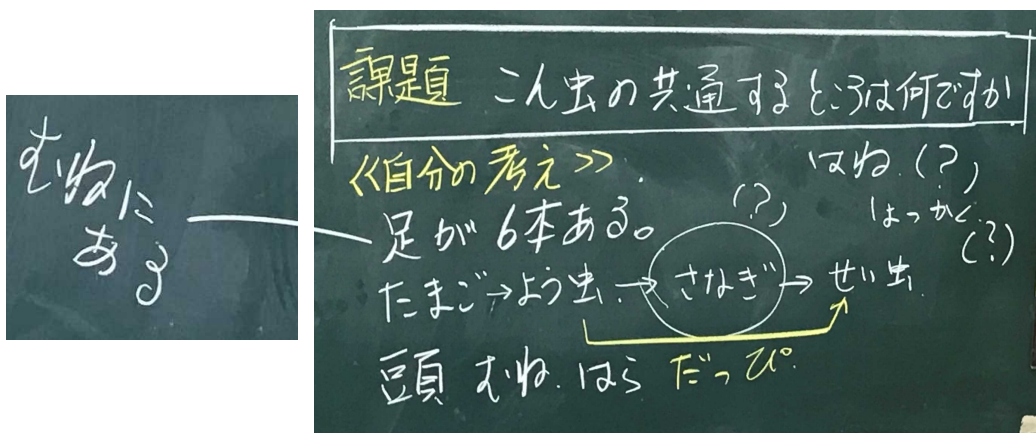 むねに
ある
課題 こん虫の共通するところは何ですか
≪自分の考え≫
はね(?)
しょっかく
(?)
足が6本ある。
(?)
たまご→よう虫→さなぎ→せい虫
頭 むね はら だっぴ